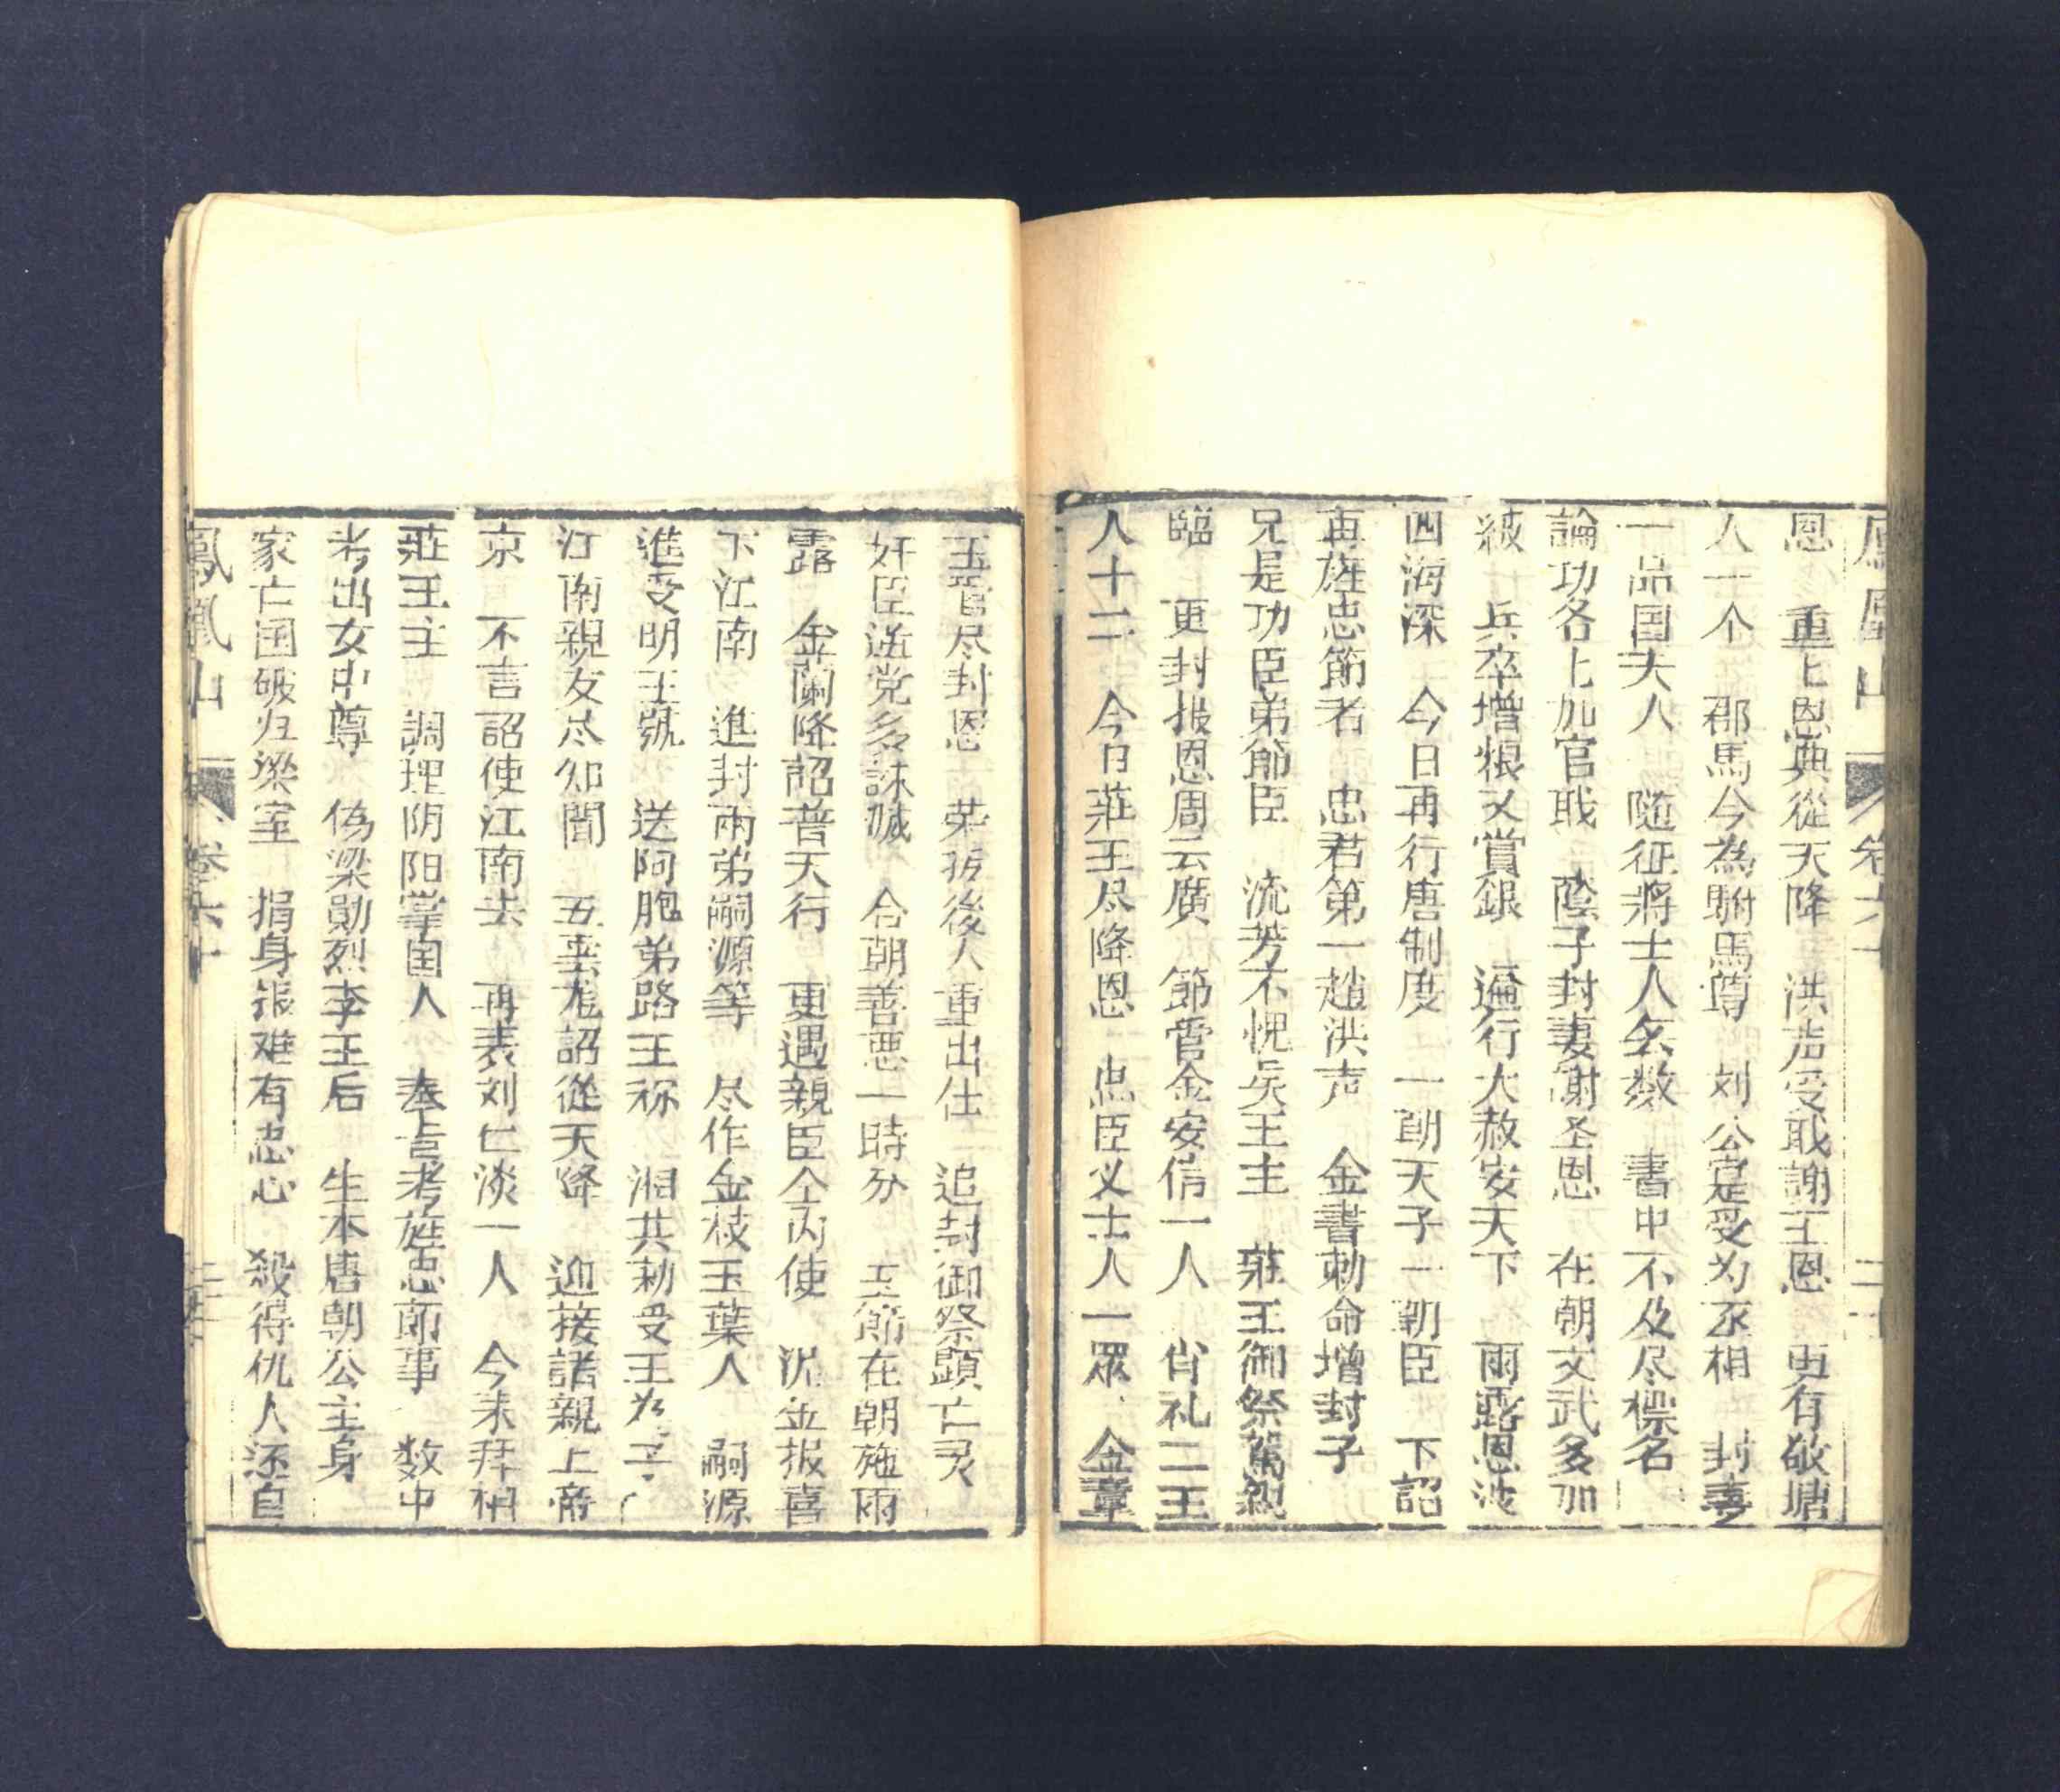 鳳凰山 卷六十
恩 重上恩典從天降 洪浩受戢謝王恩 更有敬塘
人一个 郡馬今為駙馬尊 刘公定受为丞相 封妻
一品国夫人 隨征將士人名数 書中不及尽標名
論功各上加官戢 蔭子封妻謝圣恩 在朝文武多加
級 兵卒增粮又賞銀 遍行大赦安天下 雨露恩波
四海深 今日再行唐制度 一朝天子一朝臣 下詔
再旌忠節者 忠君第一趙洪声 金書勅命增封子
兄是功臣弟節臣 流芳不愧 王主 莊王御祭駕親
臨 更封报恩周云廣 節霄金安信一人 尚礼二王
人十二 今日莊王尽降恩 忠臣义士人一眾 金章
玉 尽封恩 英 後人重出仕 追封御祭顕亡灵
奸臣 党多誅滅 合朝善悪一時分 玉節在朝施雨
露 金蘭降詔普天行 更遇親臣仝内使 沉金报喜
下江南 進封雨弟嗣源等 尽作金枝玉葉人 嗣源
進受明王號 送阿胞弟路王称 湘共勅受王为子
江南親友尽知聞 五 龙詔從天降 迎接諸親上帝
京 不言詔使江南去 再表刘仁淡一人 今来拜相
莊王主 調理阴阳掌国人 奉旨考旌忠節事 数中
考出女中尊 偽梁勛烈李王后 生本唐朝公主身
家亡国破归梁室 捐身報难有忠心 殺得仇人还自
鳳凰山 卷六十